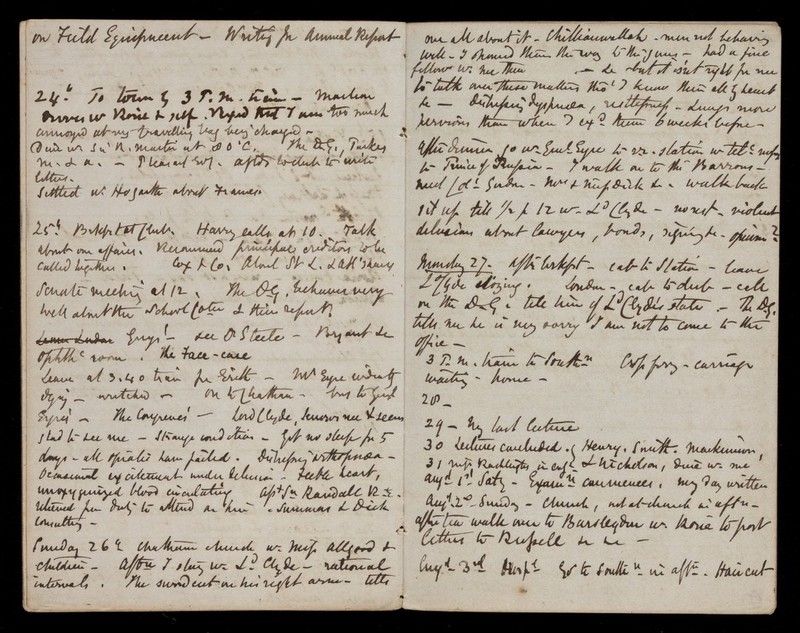 on Field Equipment - Writing for Annual Report
24th To town by 3 P.M. train - Maclean
drives w. Rosie & self. Vexed that I was too much
annoyed at my travelling bag being changed -
Dine w. Sir R. Martin at 8 o'C. The D.G., Tuckey
M. & a. - Pleasant. after to club to write
letters.
Settled w. Hogarth about Frames.
25th Bkfst at Club. Harry calls at 10. Talk
about our affairs. Recommend principal creditors to be
called together. Cox & Co. About St L. & shares
Senate meeting at 12. The D.G. behaves very
well about the School Cotee & their report.
Guys' - see Dr Steele - Bryant &c
Ophthc room. The Face-case
Leave at 3.40 train for Erith - Mr Eyre evidently
dying - wretched - on to Chatham - bus to Genl
Eyres' - The Congreves' - Lord Clyde, knows me & seems
glad to see me - Strange condition - Got no sleep for 5
days - all opiates have failed. Distressing orthopnœa -
Occasional excitement under delusion - feeble heart,
unoxygenized blood circulating Asst Sn Randall R.E.
relieved from duty to attend on him. Summons & Dick
consulting -
Sunday 26th Chatham church w. Miss Allgood &
children - After I stay w. Ld Clyde - rational
intervals. The sword cut on his right arm - tells
me all about it - Chillianwallah - men not behaving
well - I showed them the way to the guns - had a fine
fellow w. me then - &c but it isn't right for me
to talk over these matters tho' I know them all by heart
&c - Distressing dyspnœa, restlessness - Lungs more
pervious than when I exd them 6 weeks before -
After dinner go w. Genl Eyre to station w telc
to - I walk on to the Barrons -
meet Col. Gordon - Mrs & Miss Dick &c - walk back
sit up till 1/2 p 12 w. Ld Clyde - no rest - violent
delusions about lawyers, bonds, signing &c - opium?
Monday 27 - After brkfst - cab to Station - leave
Ld Clyde dozing. London - cab to club - call
on the D.G. & tell him of Ld Clyde's state - The D.G.
tells me he is very sorry I am not to come to the
office -
3 P.M. train to Southn Cross ferry - carriage
waiting - home -
28 -
29 - My last lecture
30 Lectures concluded by Henry. Smith. Mackinnon,
31 & Nicholson, dine w. me
Augt 1st Saty - Examn commences. my day written
Augt 2nd Sunday - Church, not at church in aftn -
after tea walk over to Bursledon w. Rosie to post
letters to Russell &c -
Augt 3rd Hospl Go to Southn in aftn. Hair cut